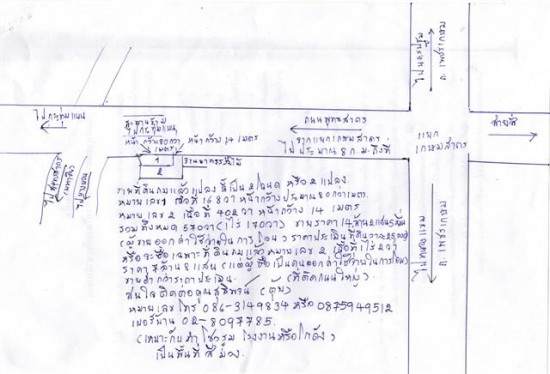 ไปนครปฐม
ถ. เพชรเกษม
ไปกระทุ่มแบน
หน้ากว้าง 14 เมตร
ถนนพุทธสาคร
จากแยกเกษมสาคร
ไปประมาณ 8 ก.ม. ถึงที่
แยก
เกษมสาคร
1
2
ขายที่ดินถมแล้ว แปลงนี้เป็น 2 โฉนด หรือ 2 แปลง
หมายเลข 1 เนื้อที่ 168 วา หน้ากว้างประมาณ
หมายเลข 2 เนื้อที่ 402 วา หน้ากว้าง 14 เมตร
รวมทั้งหมด 570 วา (1 ไร่ 170 วา) ขายราคา 14 ล้าน 2 แสน 5 หมื่น
(ผู้ขายออกค่าใช้จ่ายในการโอน) ราคาประเมินที่ดิน
หรือจะซื้อเฉพาะที่ดินถมแล้ว หมายเลข 2 เนื้อที่ 1 ไร่ 2 วา
ราคา 7 ล้าน 8 แสน (แต่ผู้ซื้อเป็นคนออกค่าใช้จ่ายในการโอน)
ขายต่ำกว่าราคาประเมิน (ที่ติดถนนใหญ่)
สนใจติดต่อคุณสุธีพจน์ (ตุ้ม)
หมายเลขโทร 086-3149834 หรือ 0875949512
เบอร์บ้าน 02-8097785.
(เหมาะกับทำโชว์รูม โรงงานหรือโกดัง)
เป็นพื้นที่สีม่วง
ถ. เพชรเกษม